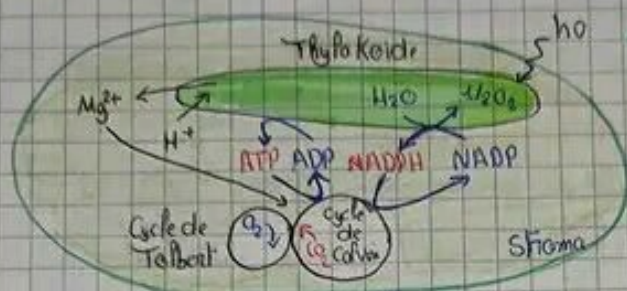 hν
Thylakoïde
Mg²⁺
H₂O
1/2O₂
H⁺
ATP ADP NADPH NADP
Cycle de Tolbert
O₂
Cycle de Calvin
CO₂
Stroma